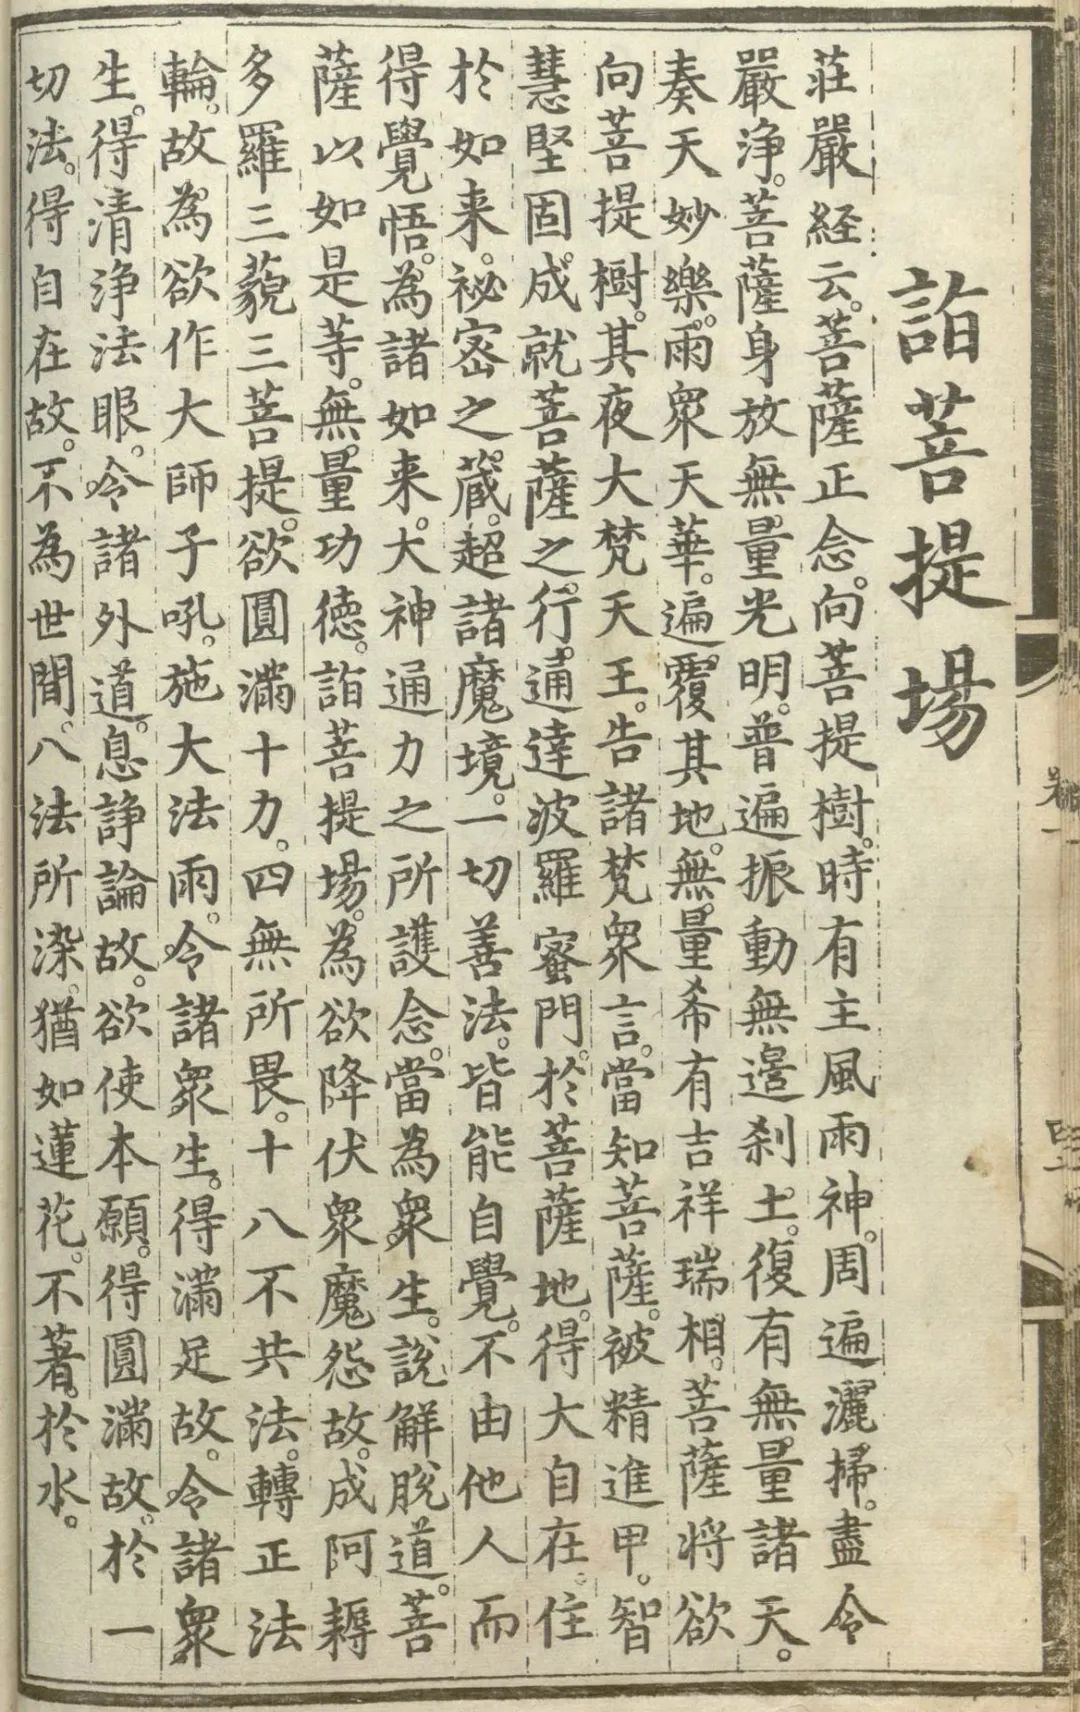 詣菩提場
莊嚴経云。菩薩正念。向菩提樹。時有主風雨神。周遍灑掃。盡令
嚴浄。菩薩身放無量光明。普遍振動無邉刹土。復有無量諸天。
奏天妙樂。雨衆天華。遍覆其地。無量希有吉祥瑞相。菩薩将欲
向菩提樹。其夜大梵天王。告諸梵衆言。當知菩薩。被精進甲。智
慧堅固。成就菩薩之行。通達波羅蜜門。於菩薩地。得大自在。住
於如来。祕宻之蔵。超諸魔境。一切善法。皆能自覺。不由他人而
得覺悟。為諸如来。大神通力之所護念。當為衆生。說解脫道。菩
薩以如是等。無量功德。詣菩提場。為欲降伏衆魔怨故。成阿耨
多羅三藐三菩提。欲圓滿十力。四無所畏。十八不共法。轉正法
輪。故為欲作大師子吼。施大法雨。令諸衆生。得滿足故。令諸衆
生。得清浄法眼。令諸外道。息諍論故。欲使本願。得圓滿故。於一
切法。得自在故。不為世間。八法所染。猶如蓮花。不著於水。